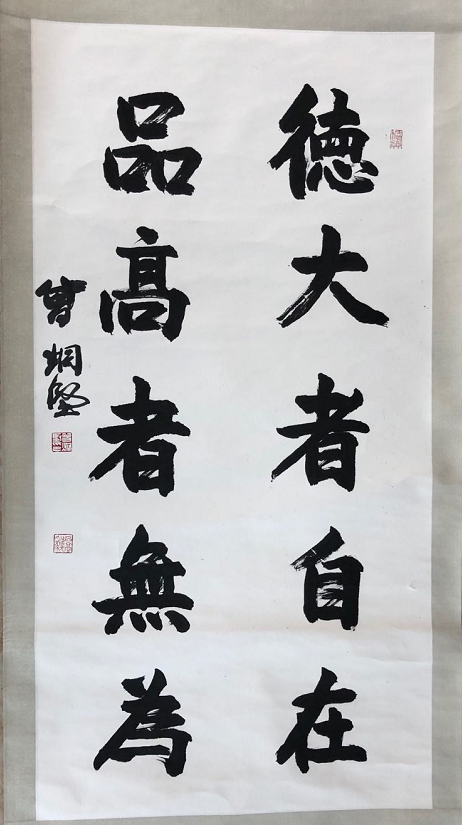 德大者自在
品高者無為
曾炯堅